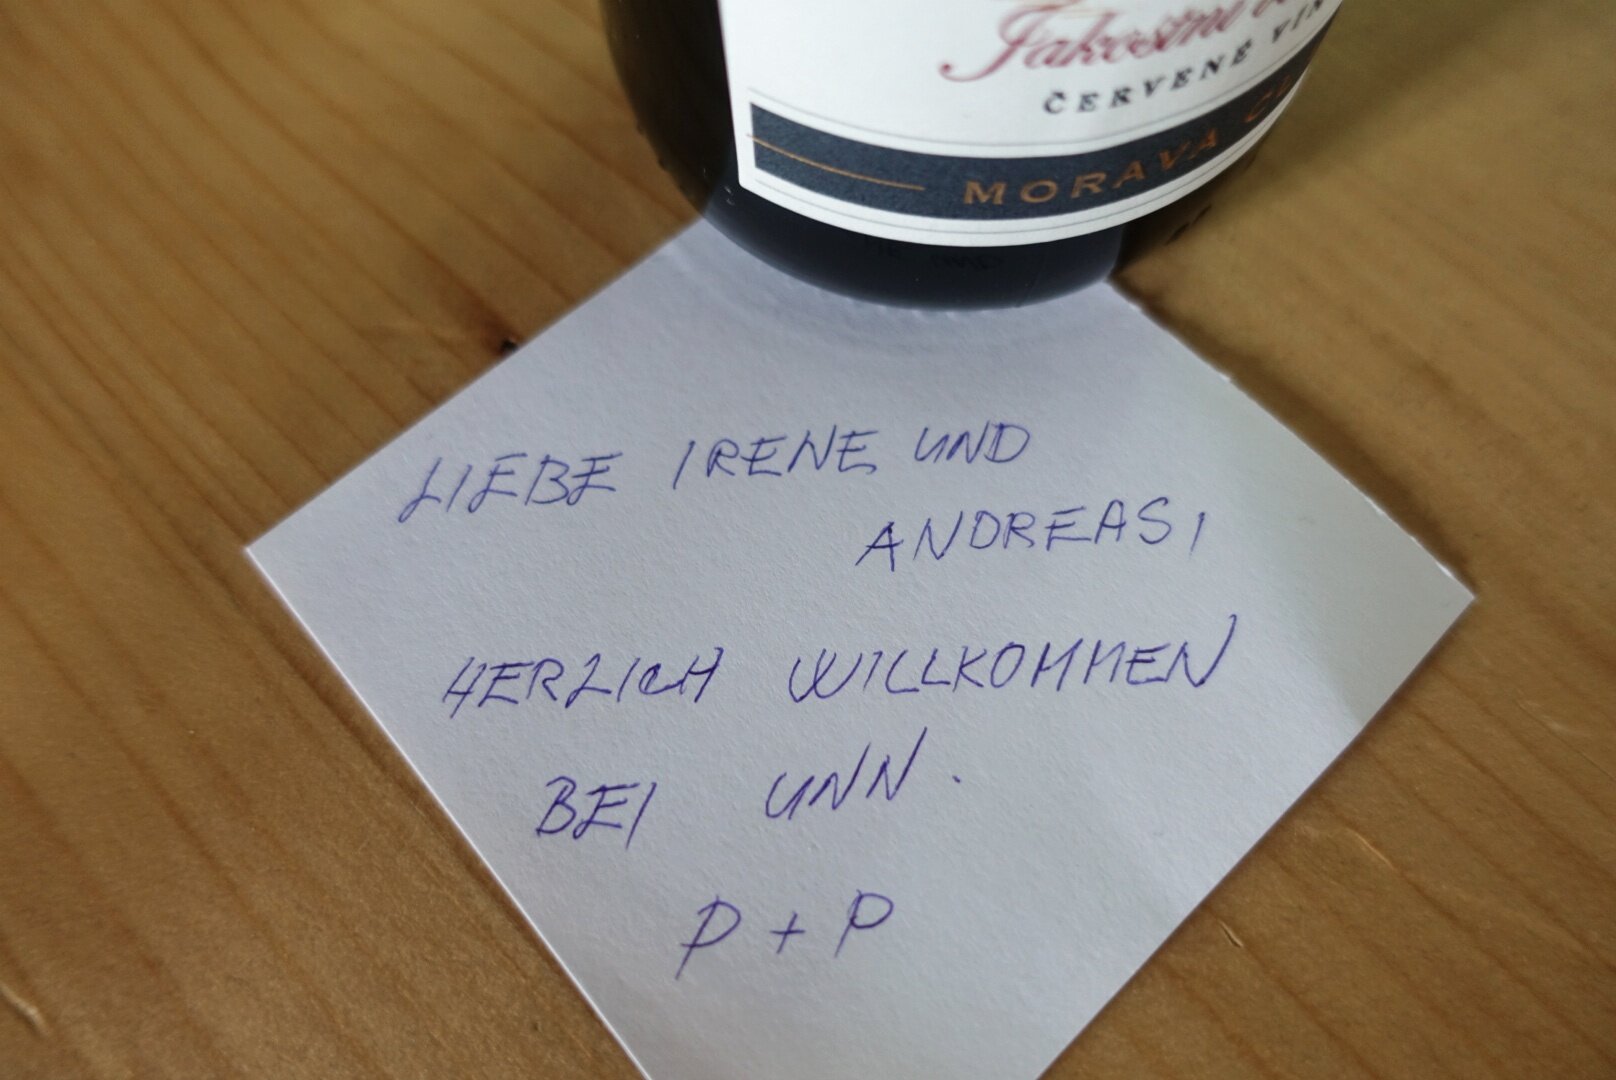 Jakostní
ČERVENÉ VÍN
MORAVA
LIEBE IRENE UND
ANDREAS,
HERZLICH WILLKOMMEN
BEI UNN.
P + P